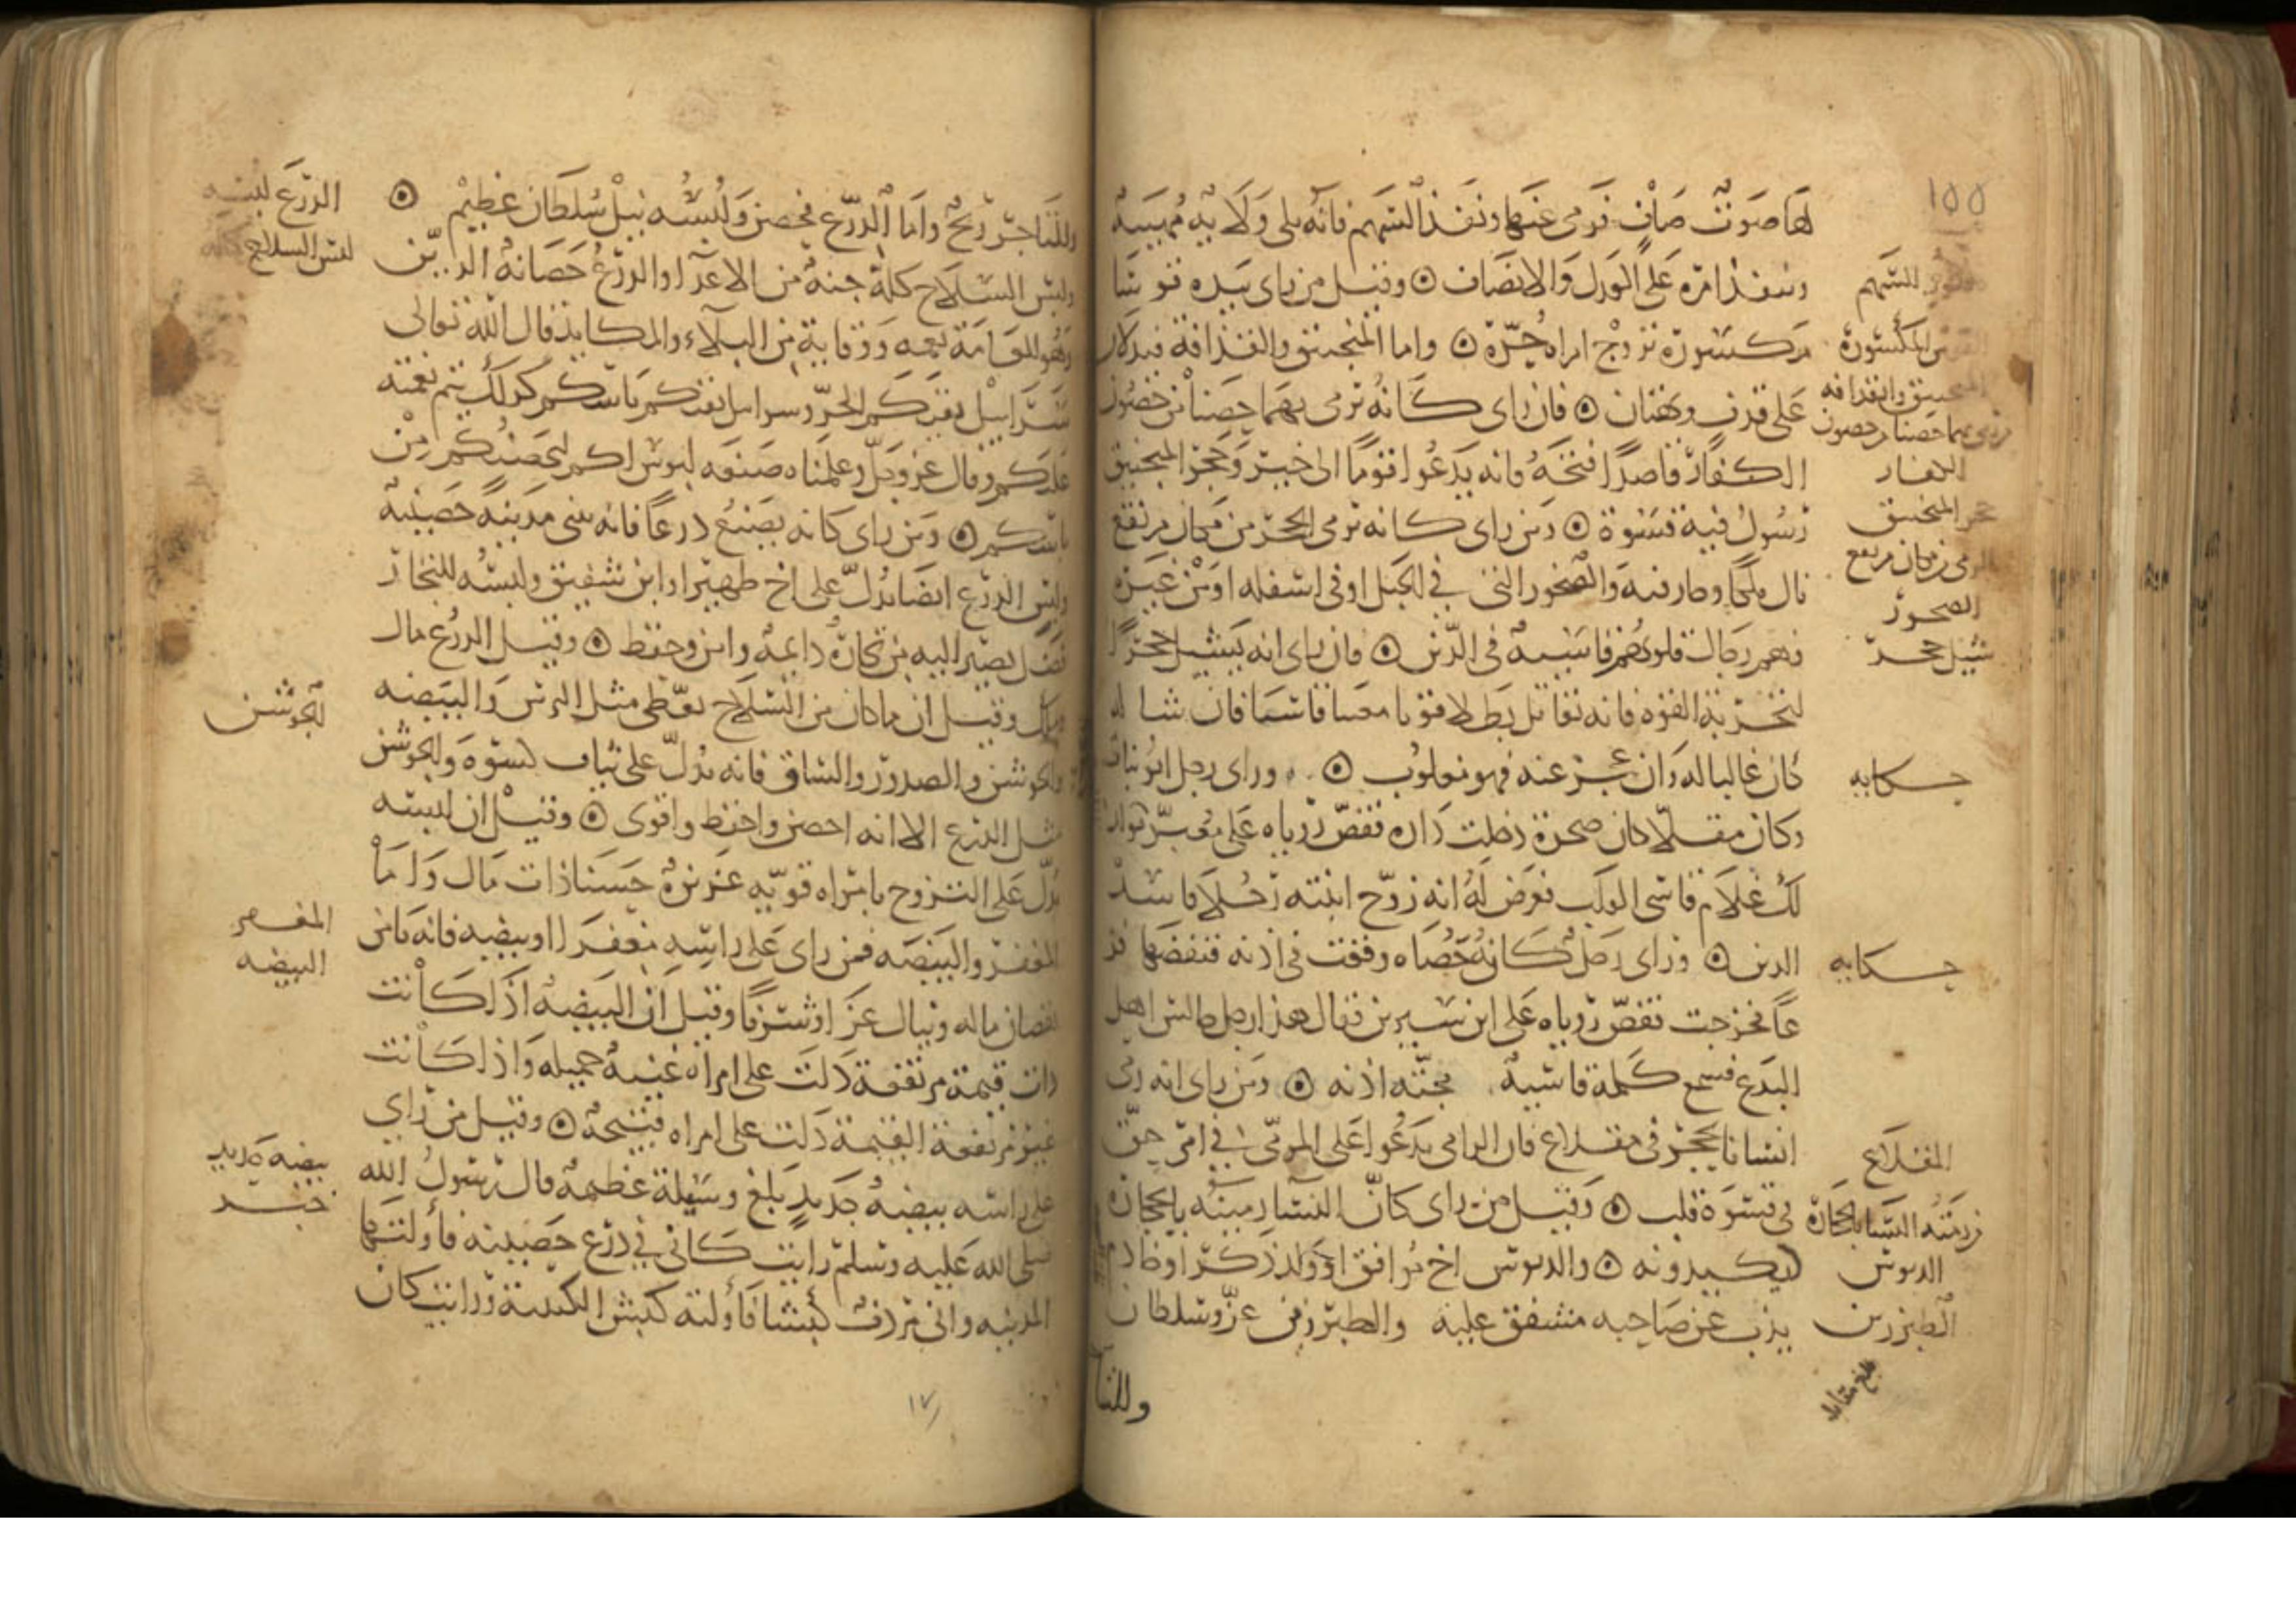 ١٥٥
لها صوت صاف فرمى عنها ونفذ السهم فانه يلي ولاية مهيبة
وينفذ امره على العدل والانصاف ۞ وقيل من راى بيده قوسا
مكسورة تزوج امراه حرة ۞ واما المنجنيق والقذافة فيدلان
على قذف وبهتان ۞ فان راى كانه ترمى بهما حصنا من حصون
الكفار قاصدا فتحه فانه يدعوا قوما الى خير وحجر المنجنيق
رسول فيه قسوة ۞ ومن راى كانه يرمى الحجر من مكان مرتفع
نال ملكا وجار فيه والصخور التى في الجبل او فى اسفله او من غيره
فهم رجال قلوبهم قاسية فى الدين ۞ فان راى انه يشيل حجرا
لتجربة القوة فانه يقاتل بطلا قويا
كان غالبا له وان عجز عنه فهو مغلوب ۞ وراى رجل
وكان مقلا كان صخرة دخلت داره فقص روياه على معبر فقال
لك غلام قاسى القلب فعرض له انه زوج ابنته رجلا فاسد
الدين ۞ وراى رجل كان حصاه وقعت فى اذنه فنفضها
فخرجت فقص روياه على ابن سيرين فقال هذا رجل جالس اهل
البدع فسمع كلمة قاسية مجته اذنه ۞ ومن راى انه رمى
انسانا بحجر فى مقلاع فان الرامى يدعوا على المرمى في امر حق
فى قسوة قلب ۞ وقيل من راى كان النسا رمينه بالحجارة
يكيدونه ۞ والدبوس اخ موافق او ولد ذكر او خادم
يذب عن صاحبه مشفق عليه والطبرزين عز وسلطان
للسهم
المكسورة
المنجنيق والقذافه
بهما حصنا من حصون
الكفار
حجر المنجنيق
الرمى من مكان مرتفع
الصخور
شيل حجر
حكايه
حكايه
المقلاع
رمته النسا بالحجارة
الدبوس
الطبرزين
بلغ مقابله
وللتا
وللتاجر ربح واما الدرع فحصن ولبسه نيل سلطان عظيم ۞
ولبس السلاح كله جنة من الاعداء والدرع حصانة الدين
وهو للعامة نعمه ووقاية من البلاء والمكايد قال الله تعالى
سرابيل تقيكم الحر وسرابيل تقيكم باسكم كذلك يتم نعمته
عليكم وقال عز وجل وعلمناه صنعه لبوس لكم لتحصنكم من
باسكم ۞ ومن راى كانه يصنع درعا فانه يبنى مدينة حصينة
ولبس الدرع ايضا يدل على اخ ظهير او ابن شفيق ولبسه للتجار
فضل يصير اليه من تجارة دايمة وامن وحفظ ۞ وقيل الدرع مال
وملك وقيل ان ما كان من السلاح يغطى مثل الترس والبيضه
والجوشن والصدور والساق فانه يدل على ثياب كسوة والجوشن
مثل الدرع الا انه احصن واحفظ واقوى ۞ وقيل ان لبسه
يدل على التزوج بامراه قويه عزيزة حسنا ذات مال واما
المغفر والبيضه فمن راى على راسه مغفرا او بيضه فانه يامن
نقصان ماله وينال عزا وشرفا وقيل ان البيضه اذا كانت
ذات قيمة مرتفعة دلت على امراه غنية جميله واذا كانت
غير مرتفعة القيمة دلت على امراه قبيحة ۞ وقيل من راى
على راسه بيضه حديد بلغ وسيلة عظيمه قال رسول الله
صلى الله عليه وسلم رايت كانى في درع حصينه فاولتها
المدينه وانى مردف كبشا فاولته كبش الكتيبة ورايت كان
الدرع لبسه
لبس السلاح كله
الجوشن
المغفر
البيضه
بيضه حديد
خبر
١٧